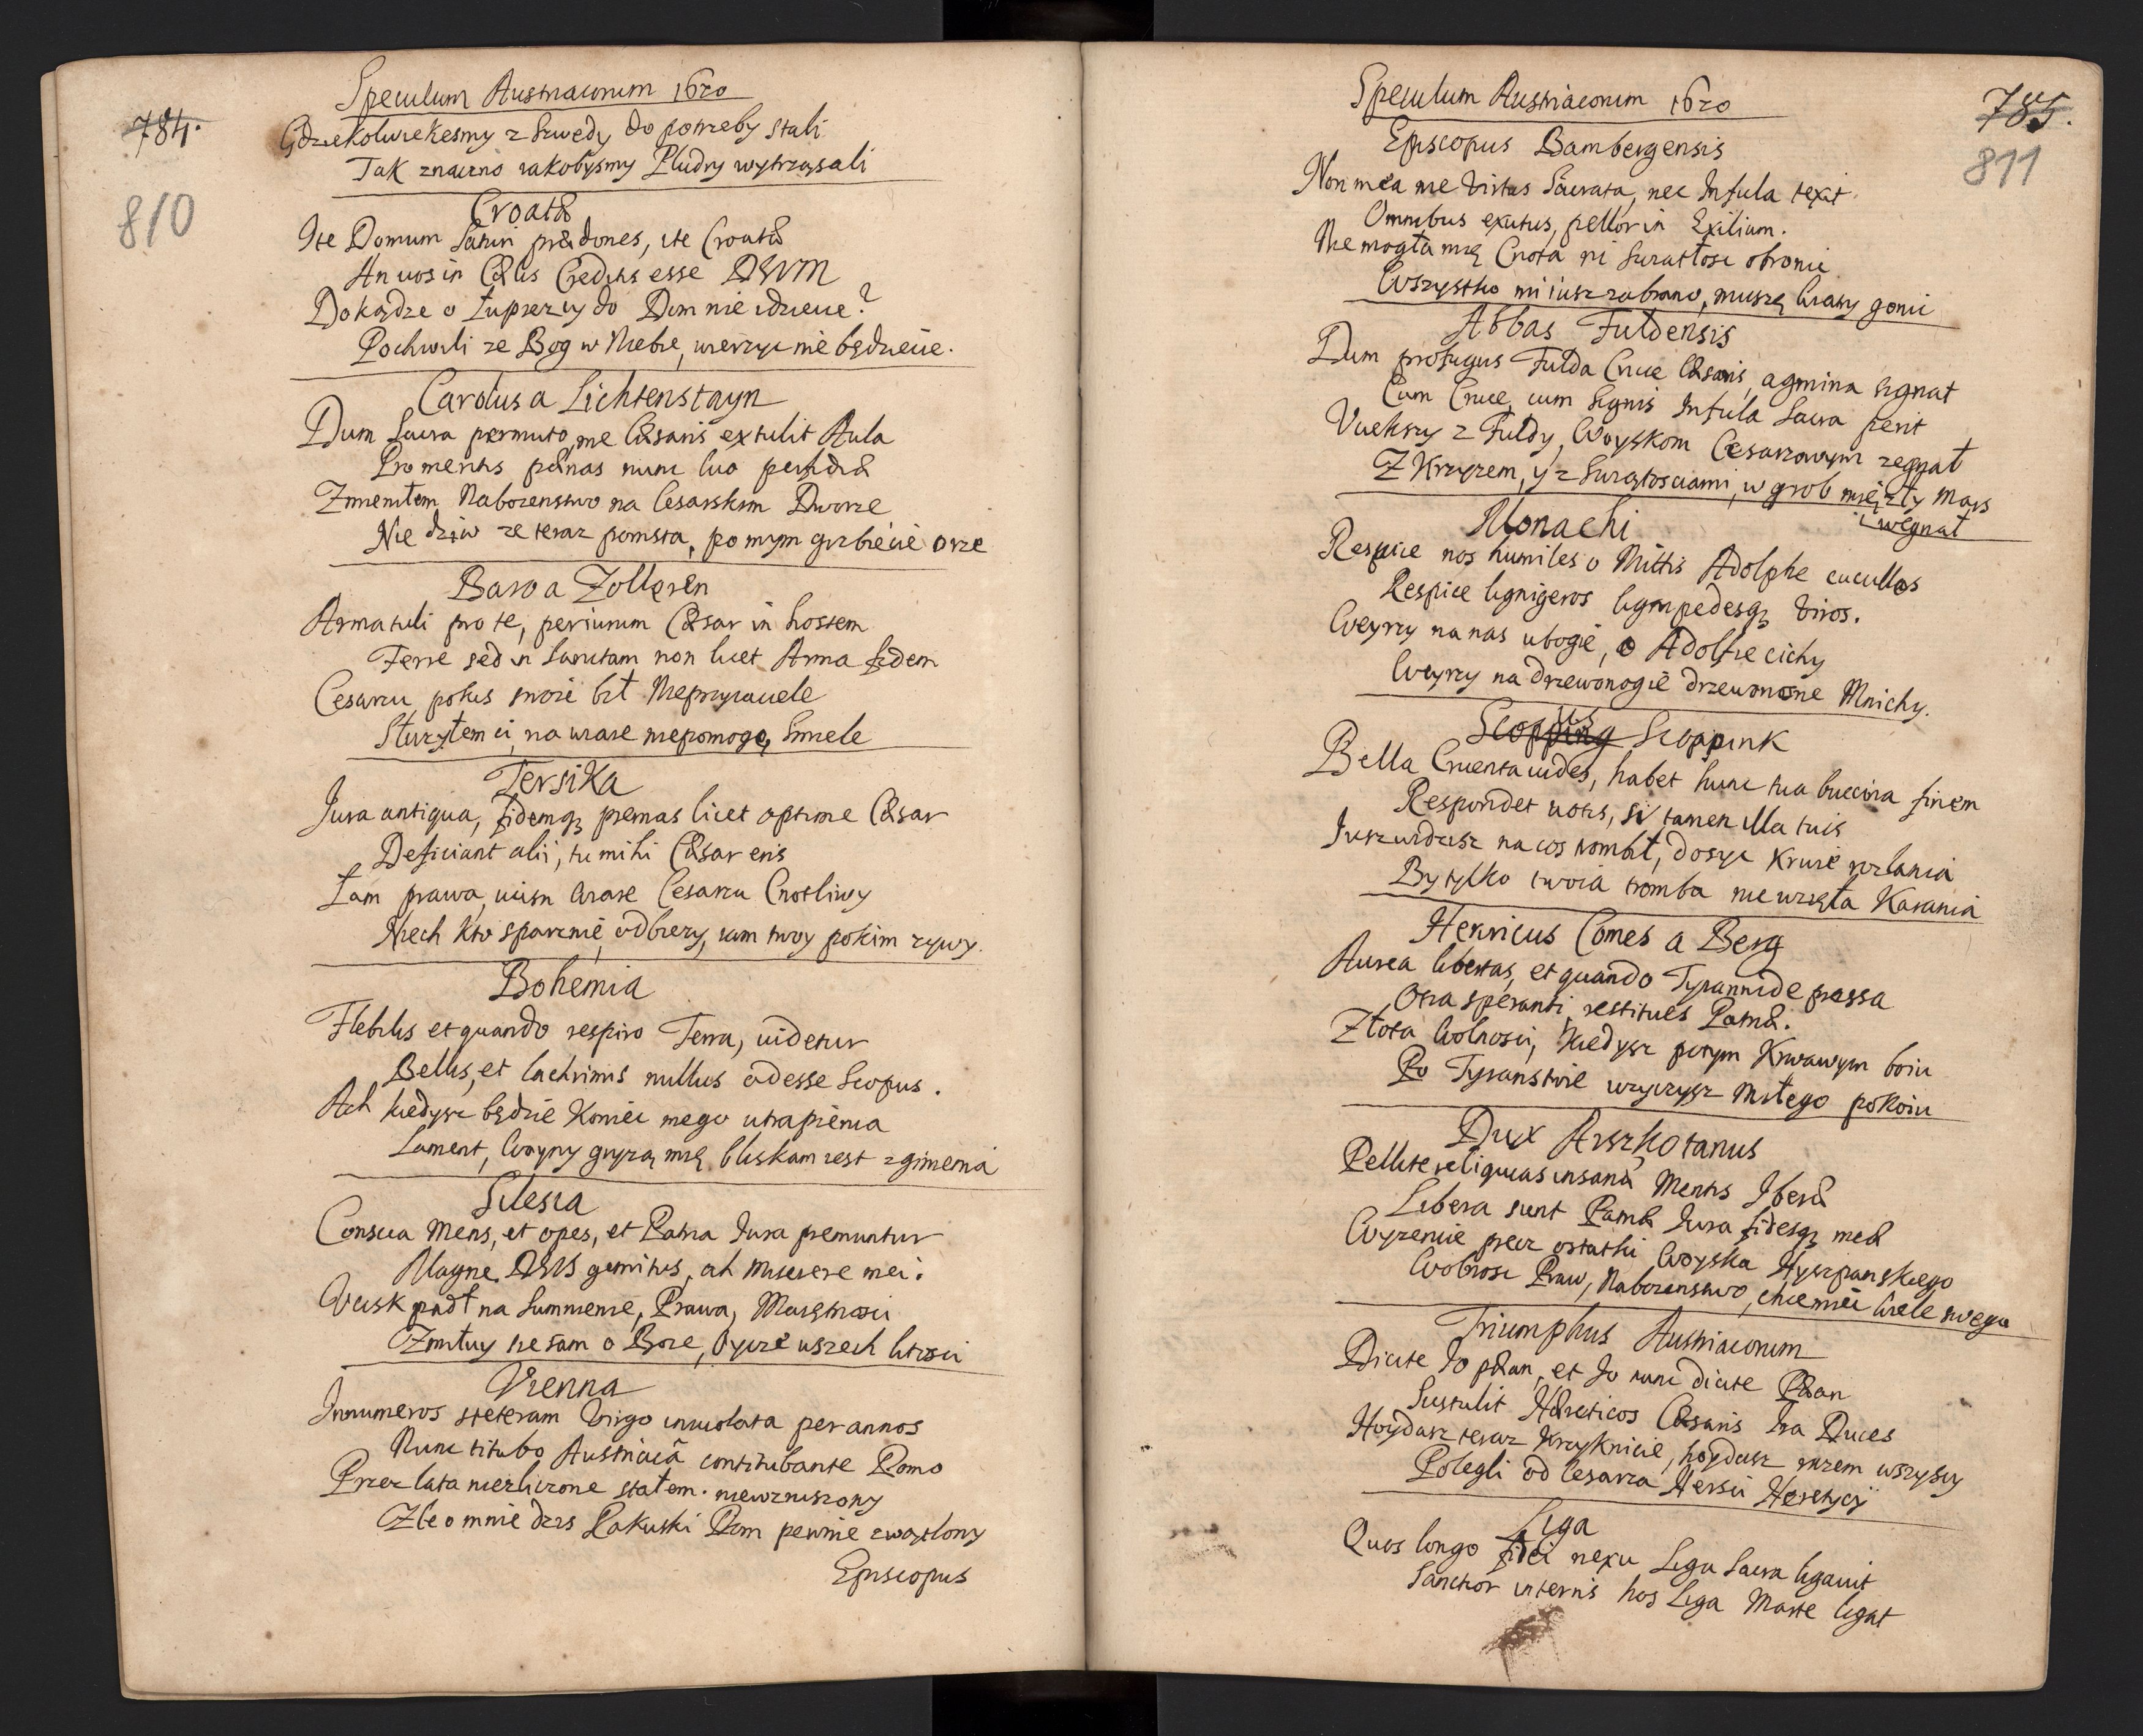 Speculum Austriacorum 1620
784.
810
Gdziekolwiekesmy z Szwedy do potrzeby stali
Tak znaczno iakobysmy Pludry wytrząsali
Croatæ
Ite Domum Saturi prædones, ite Croatæ
An uos in Cælis Creditis esse DEVM
Dokądze o Łupiezcy do Dom nie idziecie?
Pochwili ze Bog w Niebie, wierzyc nie będziecie.
Carolus a Lichtenstayn
Dum Sacra permuto, me Cæsaris extulit Aula
Pro meritis pænas nunc luo perfidiæ
Zmieniłem Nabozenstwo na Cesarskim Dworze
Nie dziw ze teraz pomsta, po mym grzbiecie orze
Baro a Zolleren
Arma tuli pro te, periurum Cæsar in hostem
Ferre sed in Sanctam non licet Arma fidem
Cesarzu pokis swoie bił Nieprzyiaciele
Słuzyłem ci, na wiare niepomogę, Smiele
Tersika
Jura antiqua, fidemqꝫ premas licet optime Cæsar
Deficiant alii, tu mihi Cæsar eris
Łam prawa, uciśn Wiare Cesarzu Cnotliwy
Niech kto sparznie odbiezy, iam twoy pokim zywy.
Bohemia
Flebilis et quando respiro Terra, uidetur
Bellis, et lachrimis nullus adesse Scopus.
Ach kiedysz będzie Koniec mego utrapienia
Lament, Woyny gryzą mię, bliskam iest zginienia
Silesia
Conscia Mens, et opes, et Patria Iura premuntur
Magne DEUS gemitus, ah miserere mei.
Ucisk padł na Summienie, Prawa, Maiętnosci
Zmiłuy sie sam o Boze, Oycze wszech litosci
Vienna
Innumeros steteram Virgo inuiolata per annos
Nunc titubo Austriacâ contitubante Domo
Przez lata niezliczone stałem niewzruszony
Zle o mnie dzis Rakuski Dom pewnie zwątlony
Episcopus
Speculum Austriacorum 1620
785.
811
Episcopus Bambergensis
Non mea me Virtus Sacrata, nec Infula texit
Omnibus exutus, pellor in Exilium.
Nie mogła mię Cnota ni Swiatłosc obronic
Wszystko mi iusz zabrano, muszę Wiatry gonic
Abbas Fuldensis
Dum profugus Fulda Cruce Cæsaris, agmina signat
Cum Cruce, cum Signis Infula Sacra perit
Vciekszy z Fuldy, Woyskom Cesarzowym zegnał
Z Krzyzem, y z Swiątosciami, w grob mię zły Mars
wegnał
Monachi
Respice nos humiles o Mittis Adolphe cucullos
Respice lignigeros lignipedesqꝫ Viros.
Weyrzy na nas ubogie, o Adolfie cichy
Weyrzy na drzewonogie drzewonośne Mnichy.
Scoppius Scoppink
Bella Cruenta uides, habet hunc tua buccina finem
Respondet uotis, si tamen illa tuis
Iusz widzisz na cos trombił, dosyc krwie rozlania
By tylko twoia tromba nie wzięła Karania
Henricus Comes a Berg
Aurea libertas, et quando Tyrannide pressa
Otia speranti, restitues Patriæ.
Złota Wolnosci, kiedysz potym Krwawym boiu
Po Tyranstwie uzyczysz Miłego pokoiu
Dux Arszhotanus
Pellite reliquias insanâ Mentis Iberæ
Libera sunt Patriæ Iura fidesqꝫ meæ
Wyzencie precz ostatki Woyska Hyszpanskiego
Wolnosc Praw, Nabozenstwo, chce miec Wiele swego
Triumphus Austriacorum
Dicite Io pæan, et Io nunc dicite Pæan
Sustulit Hæreticos Cæsaris Ira Duces
Hoydasz teraz Krzyknicie, hoydasz razem wszyscy
Polegli od Cesarza Hersci Heretycy
Liga
Quos longo fidei nexu Liga Sacra ligauit
Sanctior internis hos Liga Marte ligat